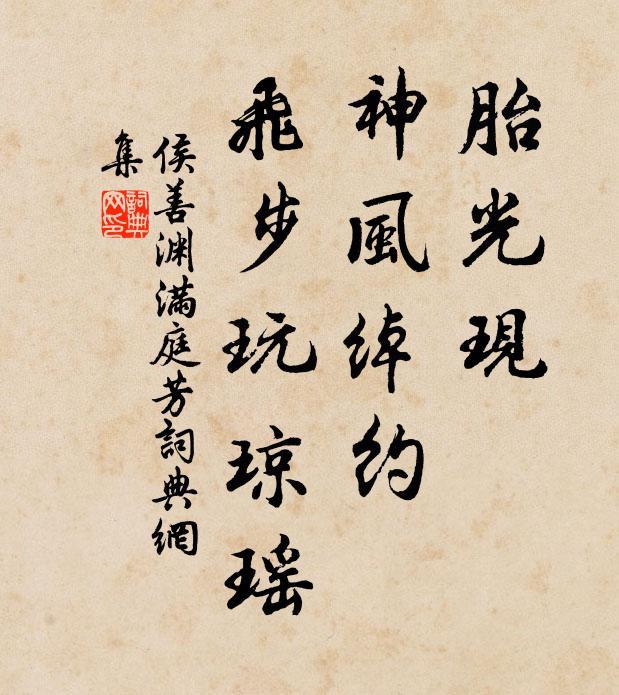 胎光現
神風綽約
飛步玩琼瑶
侯善渊滿庭芳詞典網
集
詞典网印